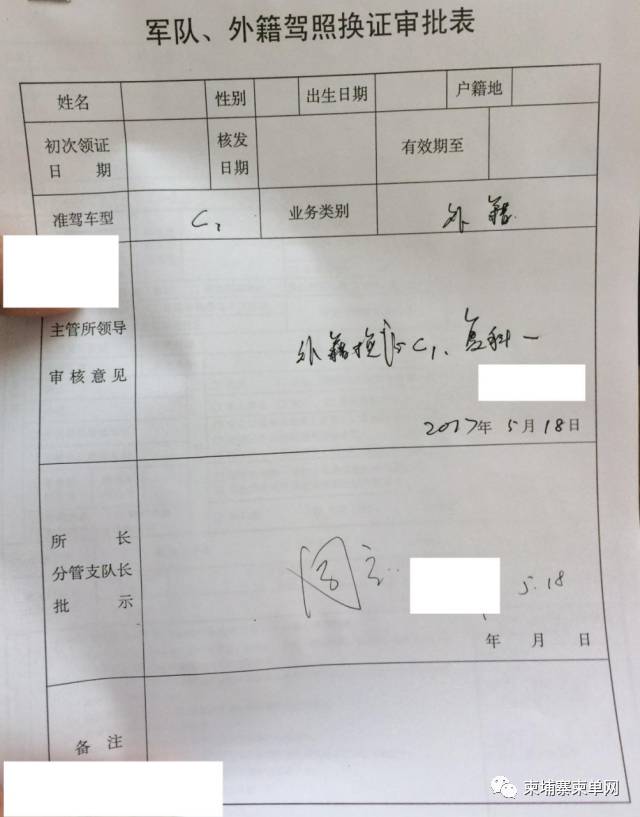 军队、外籍驾照换证审批表
姓名 性别 出生日期 户籍地
初次领证日期 核发日期 有效期至
准驾车型 C1 业务类别 外籍
主管所领导
审核意见
外籍换 C1、复科一
2017年 5月18日
所长
分管支队长
批示
同意 5.18
年 月 日
备注
柬埔寨柬单网